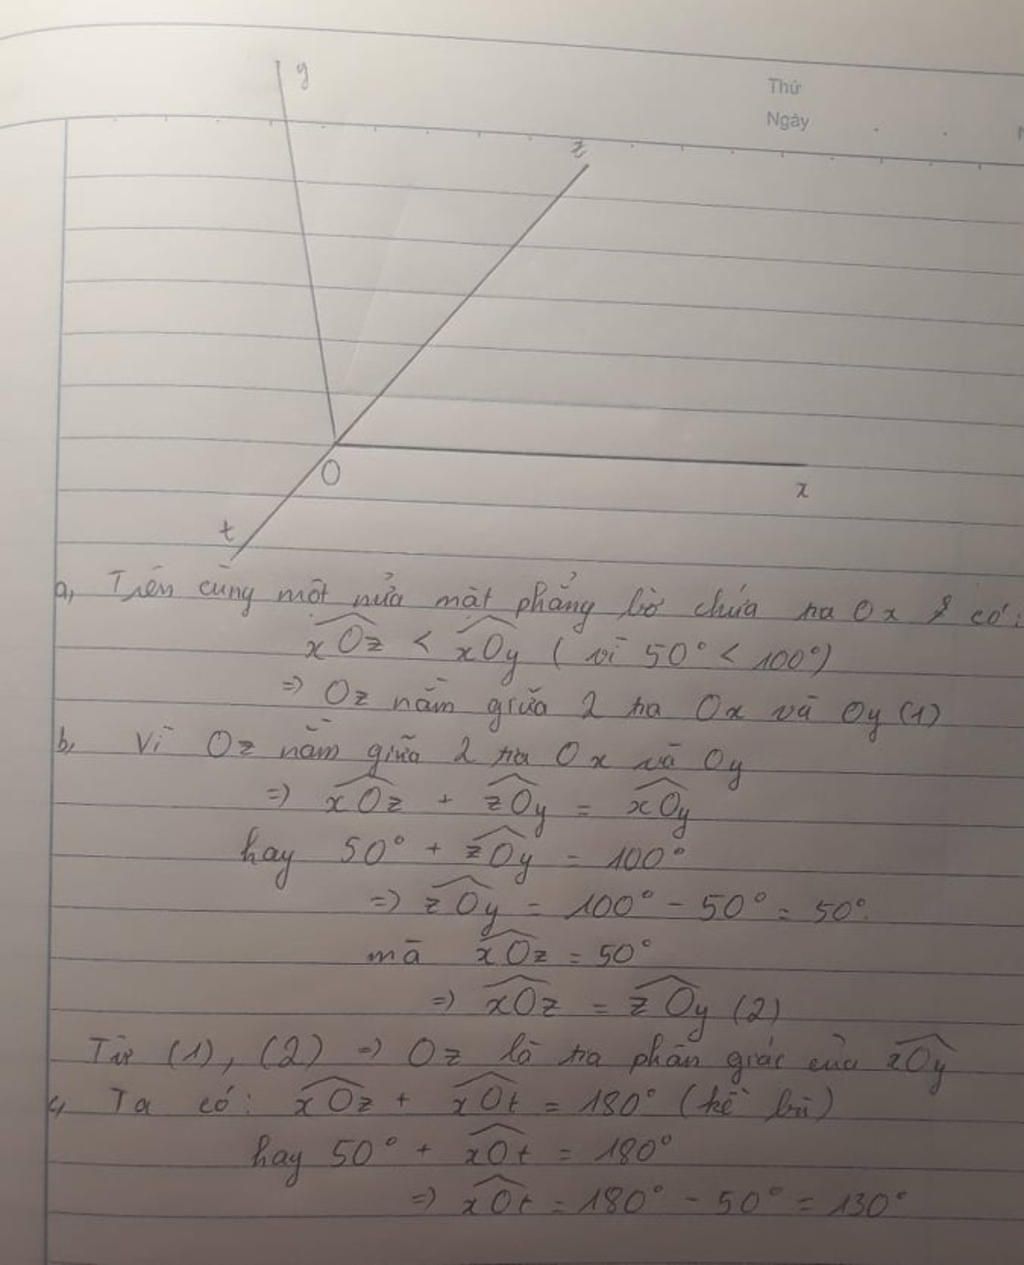 y
Thứ
Ngày
z
O
x
t
a, Trên cùng một nửa mặt phẳng bờ chứa tia Ox có:
xOz < xOy ( vì 50° < 100°)
=> Oz nằm giữa 2 tia Ox và Oy (1)
b, Vì Oz nằm giữa 2 tia Ox và Oy
=> xOz + zOy = xOy
hay 50° + zOy = 100°
=> zOy = 100° - 50° = 50°
mà xOz = 50°
=> xOz = zOy (2)
Từ (1), (2) => Oz là tia phân giác của xOy
c, Ta có: xOz + xOt = 180° (kề bù)
hay 50° + xOt = 180°
=> xOt = 180° - 50° = 130°